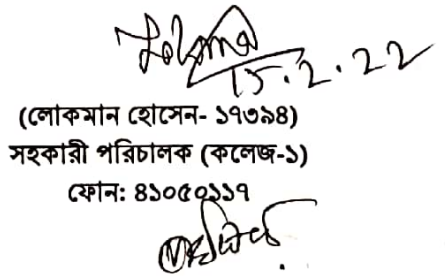 15.2.22
(লোকমান হোসেন- ১৭৩৯৪)
সহকারী পরিচালক (কলেজ-১)
ফোন: ৪১০৫০১১৭